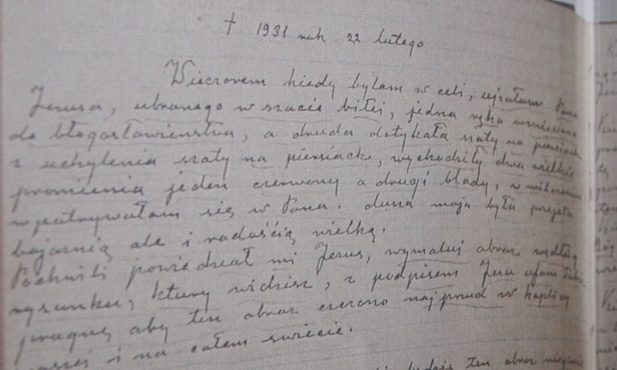 † 1931 rok 22 lutego
Wieczorem kiedy byłam w celi, ujrzałam Pana
Jezusa, ubranego w szacie białej, jedna ręka wzniesiona
do błogosławieństwa, a druda dotykała szaty na piersiach
z uchylenia szaty na piersiach, wychodziły dwa wielkie
promienia jeden czerwony a drugi blady, w milczeniu
wpatrywałam się w Pana. dusza moja była przejęta
bojaznią ale i radością wielką.
Po chwili powiedział mi Jezus, wymaluj obraz według
rysunku, ktury widzisz, z podpisem Jezu ufam Tobie
pragnę aby ten obraz czczono najprud w kaplicy
waszej i na całem świecie.
ten obraz